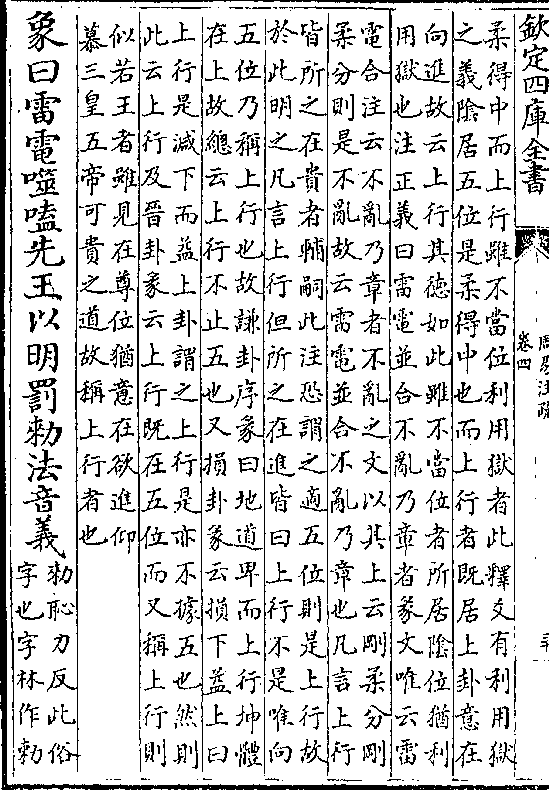 欽定四庫全書
周易注疏
卷四
柔得中而上行雖不當位利用獄者此釋爻有利用獄
之義陰居五位是柔得中也而上行者既居上卦意在
向進故云上行其德如此雖不當位者所居陰位猶利
用獄也注正義曰雷電並合不亂乃章者彖文唯云雷
電合注云不亂乃章者不亂之文以其上云剛柔分剛
柔分則是不亂故云雷電並合不亂乃章也凡言上行
皆所之在貴者輔嗣此注恐謂之適五位則是上行故
於此明之凡言上行但所之在進皆曰上行不是唯向
五位乃稱上行也故謙卦序彖曰地道卑而上行坤體
在上故總云上行不止五也又損卦彖云損下益上曰
上行是減下而益上卦謂之上行是亦不據五也然則
此云上行及晉卦彖云上行既在五位而又稱上行則
似若王者雖見在尊位猶意在欲進仰
慕三皇五帝可貴之道故稱上行者也
象曰雷電噬嗑先王以明罰勑法音義
勑恥力反此俗
字也字林作勅